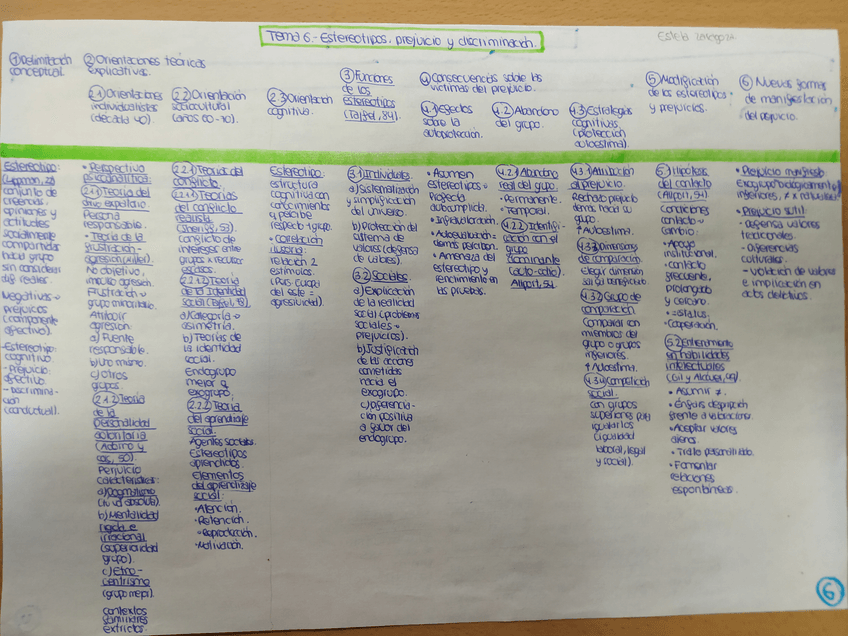 Tema 6.- Estereotipos, prejuicio y discriminación.
① Delimitación
conceptual.
② Orientaciones teóricas
explicativas.
2.1 Orientaciones
individualistas
(década 40).
2.2 Orientación
sociocultural
(años 50-70).
2.3 Orientación
cognitiva.
③ Funciones
de los
estereotipos
(Tajfel, 84).
④ Consecuencias sobre las
víctimas del prejuicio.
4.1 Efectos
sobre la
4.2 Abandono
del grupo.
4.3 Estrategias
cognitivas
(protección
autoestima)
⑤ Modificación
de los estereotipos
y prejuicios.
⑥ Nuevas formas
de manifestación
del prejuicio.
Estereotipo:
conjunto de
creencias,
opiniones y
actitudes
socialmente
compartidas
hacia grupo
sin considerar
dif. reales.
Negativas →
prejuicios
(componente
afectivo).
- Estereotipo:
cognitivo.
- Prejuicio:
afectivo.
- Discrimina-
ción
(conductual).
• Perspectiva
psicoanalítica:
2.1.1 Teoría del
chivo expiatorio
Persona
responsable.
• Teoría de la
frustración
agresión
No objetivo,
impulso agresión.
Frustración →
grupo minoritario.
Atribuir
agresión
a) Fuente
responsable.
b) Uno mismo.
c) Otros
grupos.
2.1.2 Teoría
de la
personalidad
autoritaria
(Adorno y
cols, 50).
Perjuicio
Características:
a) Dogmatismo
b) Mentalidad
rígida e
irracional
(superioridad
grupo).
c) Etno-
centrismo
contextos
familiares
estrictos.
2.2.1 Teorías del
conflicto
2.2.1.1 Teorías
del conflicto
realista
conflicto de
intereses entre
grupos x recursos
escasos.
2.2.1.2 Teoría
de la identidad
social
a) Categoría →
asimetría.
b) Teorías de
la identidad
social.
Endogrupo
mejor q
exogrupo.
2.2.2 Teoría
del aprendizaje
social.
Agentes sociales.
Estereotipos
aprendidos.
Elementos
del aprendizaje
social:
• Atención.
• Retención.
• Reproducción.
• Motivación.
Estereotipo:
estructura
cognitiva con
conocimientos
q percibe
respecto 1 grupo.
• Correlación
ilusoria:
relación 2
estímulos.
(Pers. Europa
del este =
agresividad).
3.1 Individuales.
a) Sistematización
y simplificación
del universo.
b) Protección del
sistema de
valores (defensa
de valores).
3.2 Sociales.
a) Explicación
de la realidad
social (problemas
sociales →
prejuicios).
b) Justificación
de las acciones
cometidas
hacia el
exogrupo.
c) Diferencia-
ción positiva
a favor del
endogrupo.
• Asumen
estereotipos →
Profecía
autocumplida.
• Infravaloración.
• Autoevaluación →
demás perciban.
• Amenaza del
estereotipo y
rendimiento en
las pruebas.
4.2.1 Abandono
real del grupo.
• Permanente.
• Temporal.
4.2.2 Identifi-
cación con el
grupo
dominante
(auto-odio).
Allport, 54.
4.3.1 Atribución
al prejuicio.
Rechazo prejuicio
demás hacia su
grupo.
↑ Autoestima.
Dimensiones
de comparación.
Elegir dimensión
salga beneficiado.
Grupo de
comparación
Comparar con
miembros del
grupo o grupos
inferiores.
↑ Autoestima.
4.3.4 Competición
social.
con grupos
superiores para
igualarlos
(igualdad
laboral, legal
y social).
5.1 Hipótesis
del contacto
(Allport, 54)
Condiciones
contacto →
cambio:
• Apoyo
institucional.
• Contacto
frecuente,
prolongado
y cercano.
• = Status.
• Cooperación.
5.2 Entrenamiento
en habilidades
intelectuales
• Asumir ≠.
• Énfasis descripción
frente a valoraciones.
• Aceptar valores
ajenos.
• Trato personalizado.
• Fomentar
relaciones
espontáneas.
• Prejuicio manifiesto
Exogrupo biológicamente
inferiores,
• Prejuicio sutil:
- Defensa valores
tradicionales.
- Diferencias
culturales.
- Violación de valores
e implicación en
actos delictivos.
6